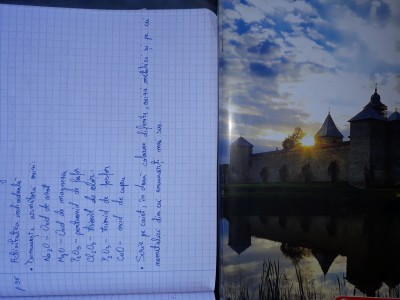 p 95
Activitatea independentă
• Denumește următorii oxizi:
Na₂O - Oxid de sodiu
MgO - Oxid de magneziu
P₂O₅ - pentaoxid de fosfor
Cl₂O₃ - Trioxid de clor
P₂O₃ - Trioxid de fosfor
CuO - oxid de cupru
• Scrie pe caiet, în două coloane diferite, oxizii metalici și pe cei
nemetalici din cei enumerați mai sus.